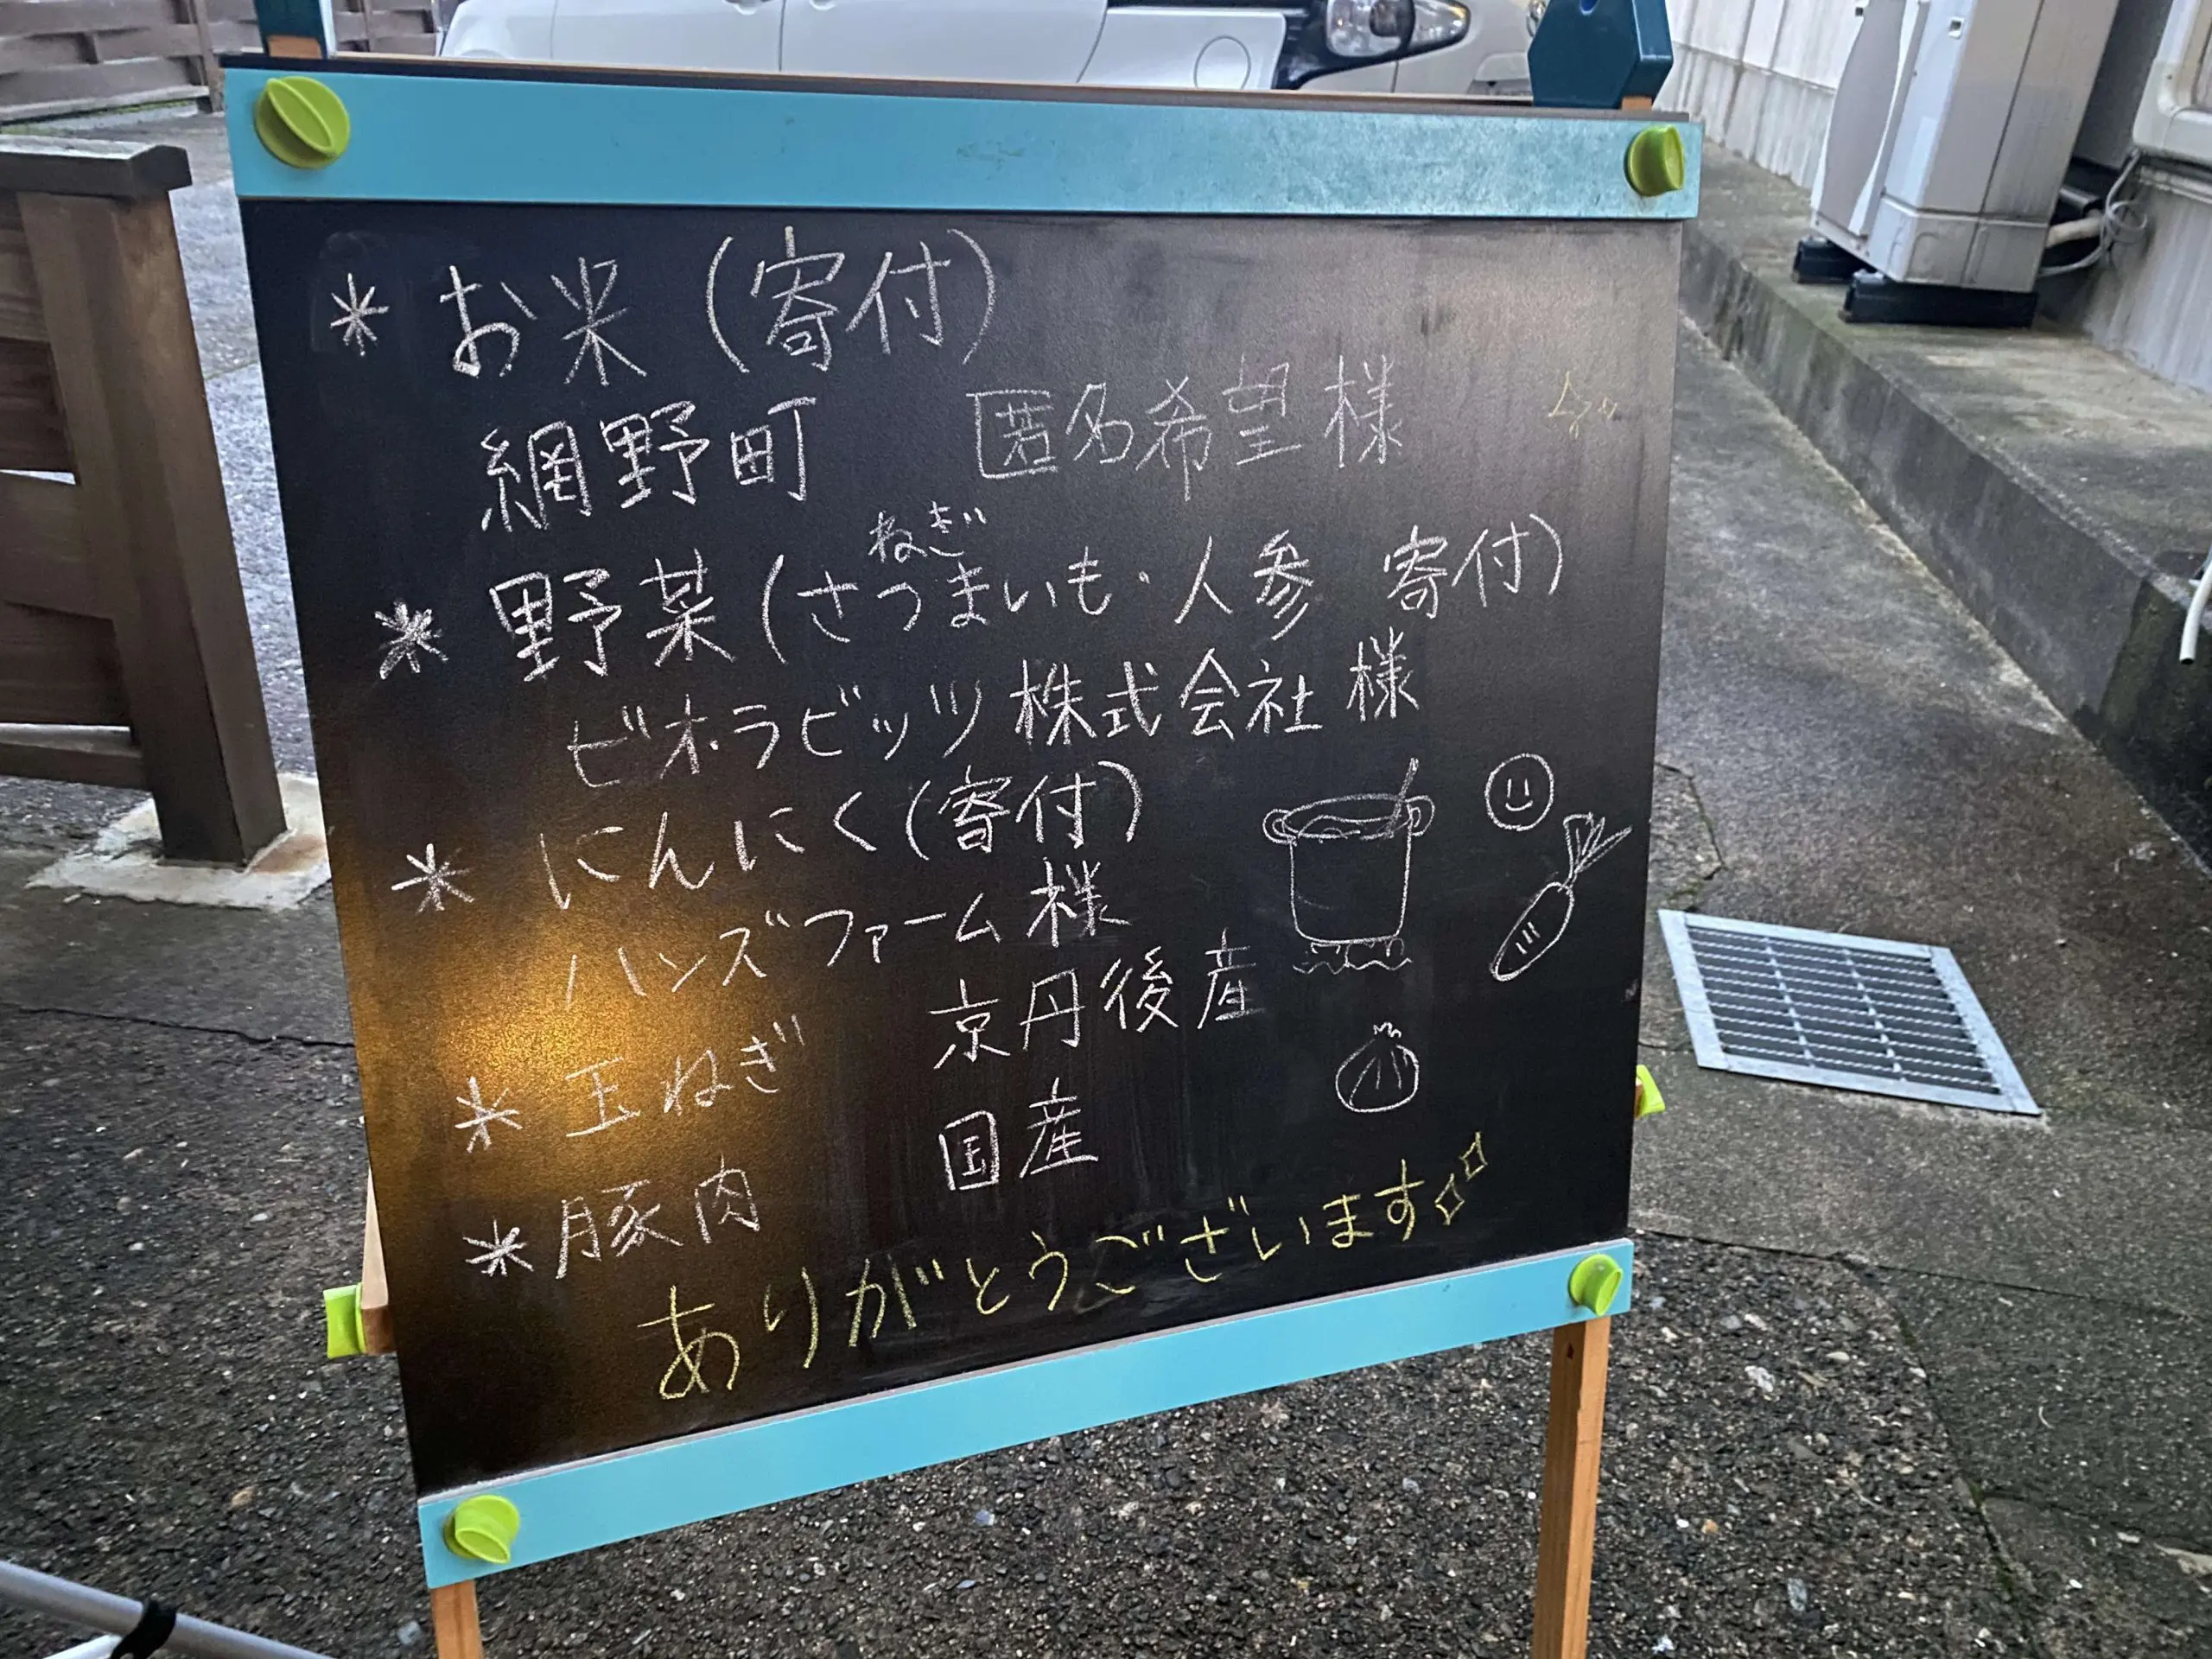 * お米 (寄付)
網野町 匿名希望様
ねぎ
* 野菜 (さつまいも・人参 寄付)
ビオ・ラビッツ株式会社 様
* にんにく(寄付)
ハンズファーム様
* 玉ねぎ 京丹後産
* 豚肉 国産
ありがとうございます